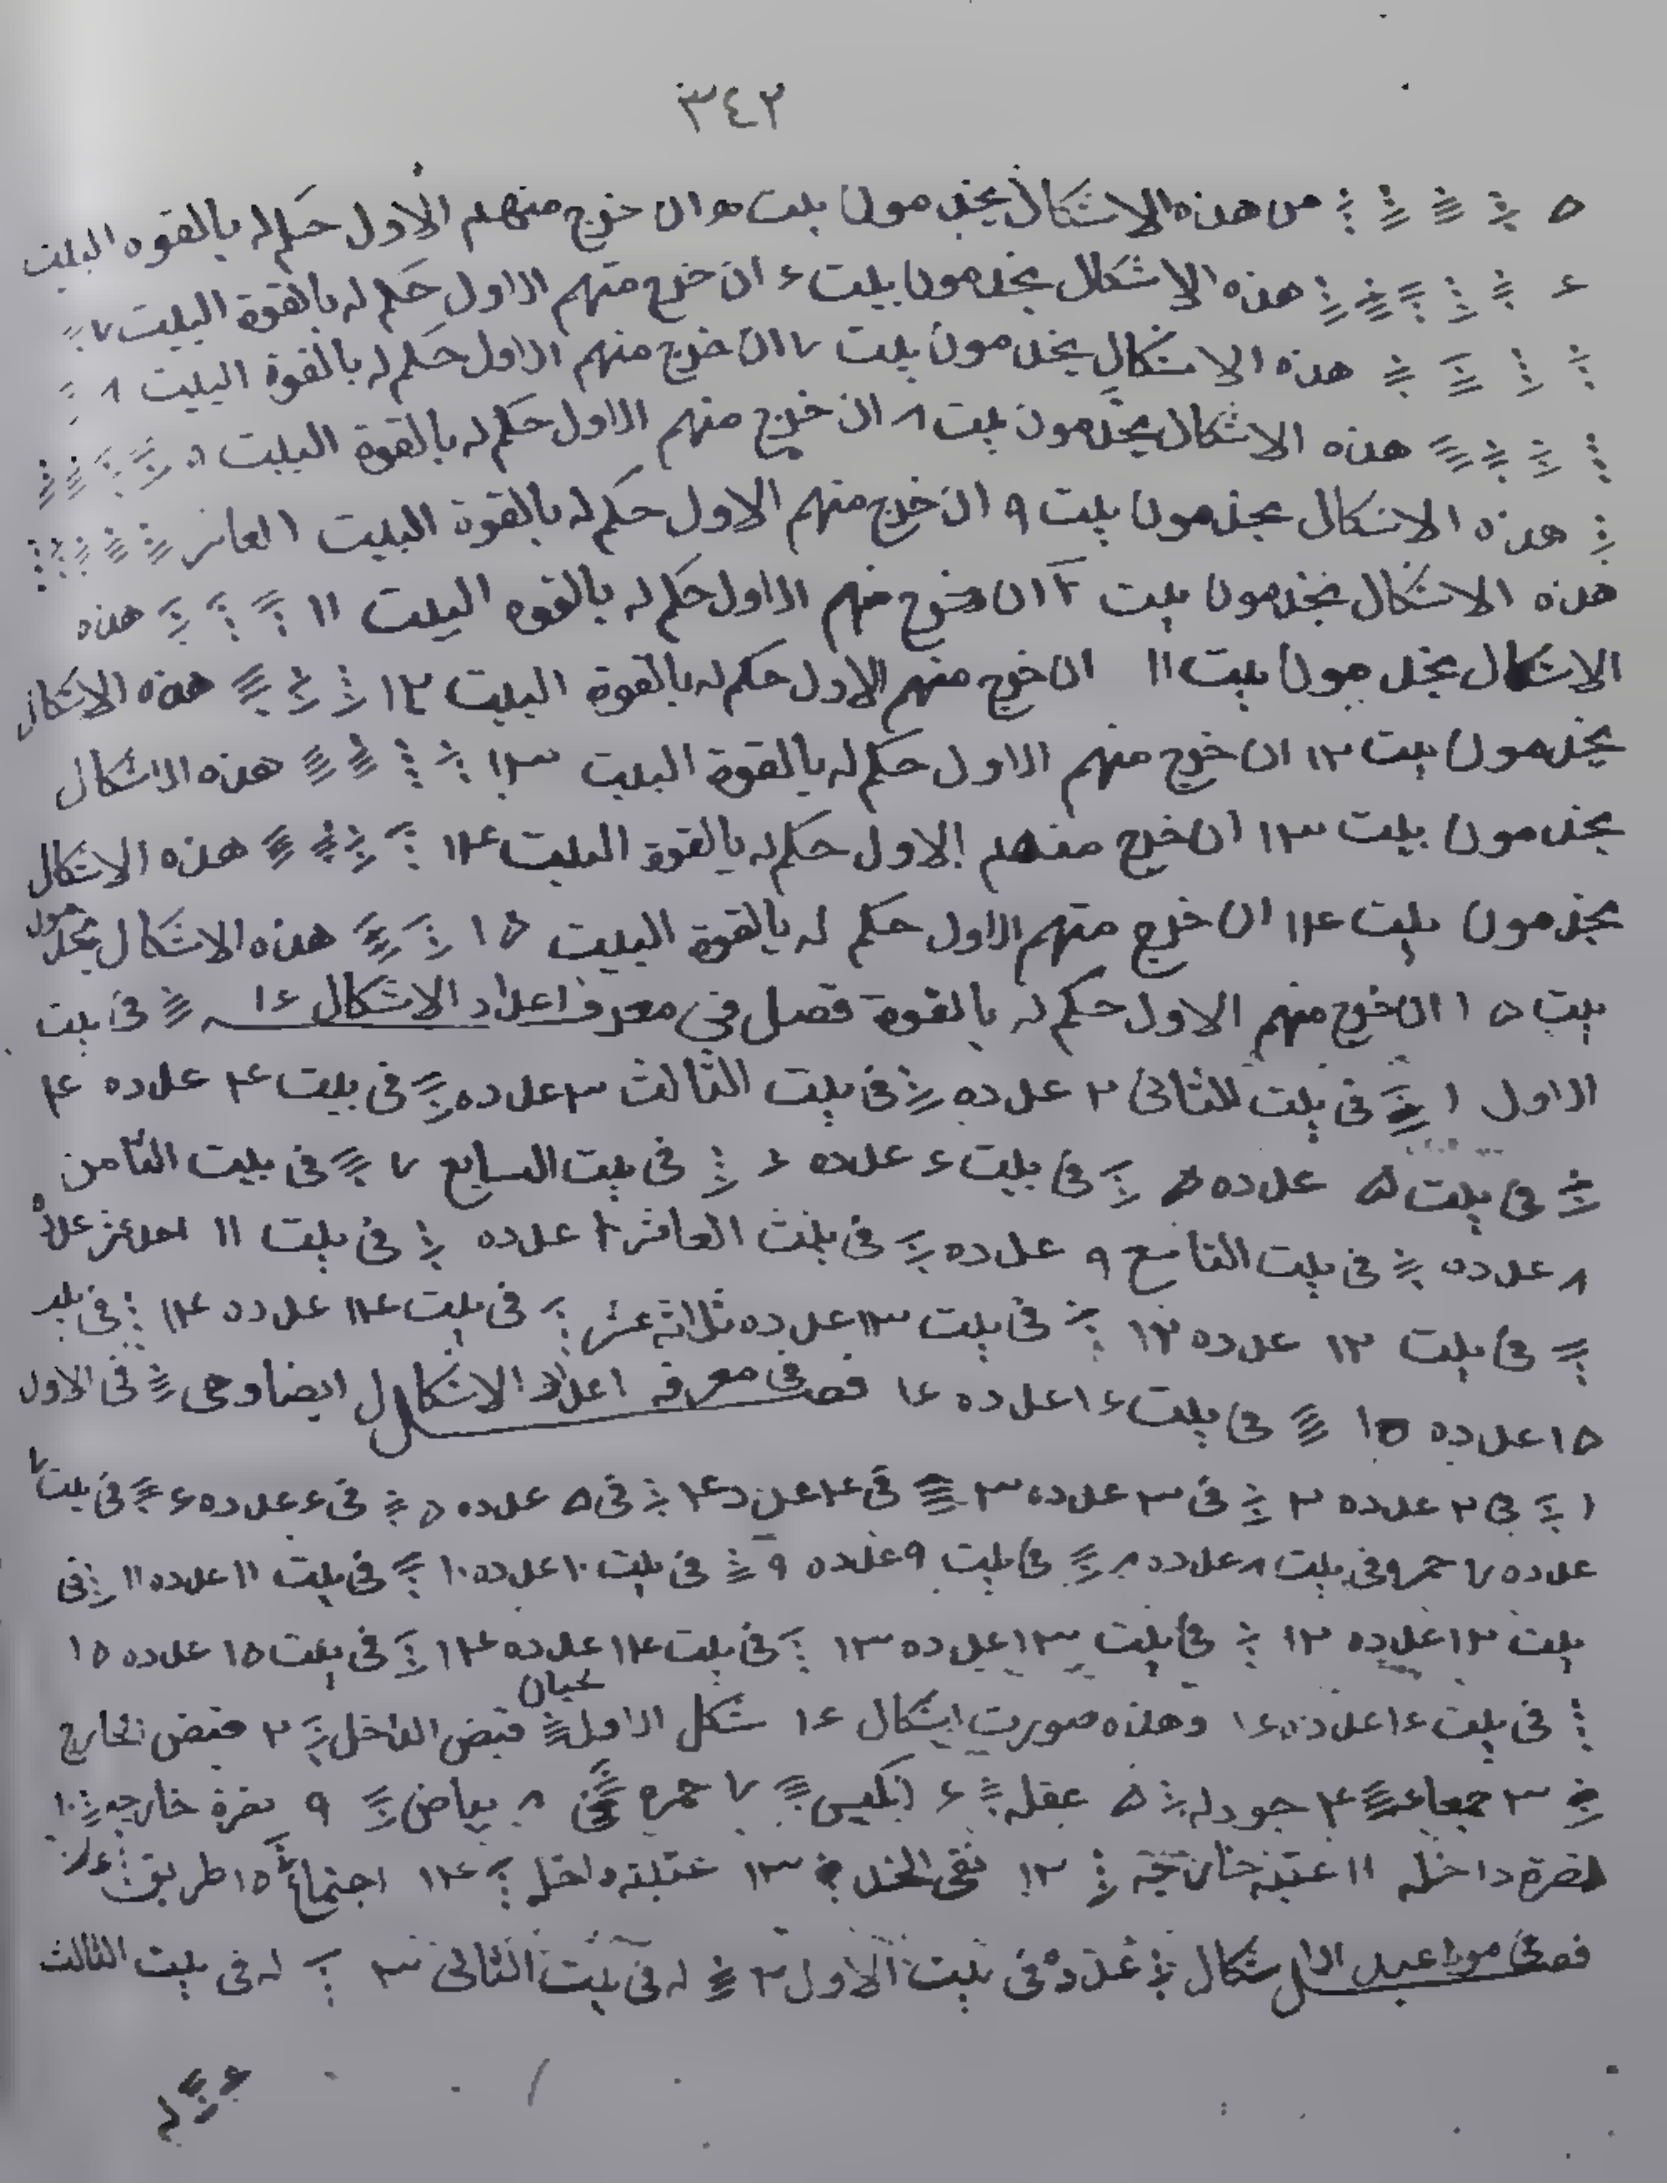 ٣٤٢
٥ من هذه الاشكال يخدمون بيت ٥ ان خرج منهم الاول حكم له بالقوه البيت
٤ هذه الاشكال يخدمون بيت ٤ ان خرج منهم الاول حكم له بالقوة البيت ٧
هذه الاشكال يخدمون بيت ٧ ان خرج منهم الاول حكم له بالقوة البيت ٨
هذه الاشكال يخدمون بيت ٨ ان خرج منهم الاول حكم له بالقوة البيت
هذه الاشكال يخدمون بيت ٩ ان خرج منهم الاول حكم له بالقوة البيت العاشر
هذه الاشكال يخدمون بيت ان خرج منهم الاول حكم له بالقوه البيت ١١ هذه
الاشكال يخدمون بيت ١١ ان خرج منهم الاول حكم له بالقوة البيت ١٢ هذه الاشكال
يخدمون بيت ١٢ ان خرج منهم الاول حكم له بالقوة البيت ١٣ هذه الاشكال
يخدمون بيت ١٣ ان خرج منهم الاول حكم له بالقوة البيت ١۴ هذه الاشكال
يخدمون بيت ١۴ ان خرج منهم الاول حكم له بالقوة البيت ١٥ هذه الاشكال يخدمون
بيت ١٥ ان خرج منهم الاول حكم له بالقوة فصل في معرف اعداد الاشكال ١٤ فى بيت
الاول ١ فى بيت الثانى ٢ عدده فى بيت الثالث ٣ عدده فى بيت ۴ عدده ۴
فى بيت ٥ عدده ٥ فى بيت ٤ عدده ٤ فى بيت السابع ٧ فى بيت الثامن
٨ عدده فى بيت التاسع ٩ عدده فى بيت العاشر عدده فى بيت ١١ احدعشر عدده
فى بيت ١٢ عدده ١٢ فى بيت ١٣ عدده ثلاثه عشر فى بيت ١۴ عدده ١۴ فى بيت
١٥ عدده ١٥ فى بيت ١٤ عدده ١٤ فصل فى معرفه اعداد الاشكال ايضا وهى فى الاول
١ فى ٢ عدده ٢ فى ٣ عدده ٣ فى ۴ عدد ۴ فى ٥ عدده ٥ فى ٤ عدده ٤ فى بيت ٧
عدده ٧ حمره فى بيت ٨ عدده ٨ فى بيت ٩ عدده ٩ فى بيت ١٠ عدده ١٠ فى بيت ١١ عدده ١١ فى
بيت ١٢ عدده ١٢ فى بيت ١٣ عدده ١٣ فى بيت ١۴ عدده ١۴ فى بيت ١٥ عدده ١٥
فى بيت ١٤ عدده ١٤ وهذه صورت اشكال ١٤ شكل الاول لحيان قبض الداخل ٢ قبض الخارج
٣ جماعه ۴ جودله ٥ عقله ٤ انكيس ٧ حمره ٨ بياض ٩ نصرة خارجه ١٠
نصرة داخله ١١ عتبة خارجة ١٢ نقى الخد ١٣ عتبة داخله ١۴ اجتماع ١٥ طريق ١٤
فصل فى مواعيد الاشكال عدده فى بيت الاول ٢ له فى بيت الثانى ٣ له فى بيت الثالث